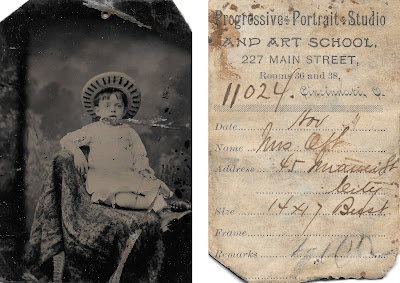 Progressive Portrait Studio
AND ART SCHOOL,
227 MAIN STREET,
Rooms 36 and 38,
11024. Cincinnati, O.
Date Nov
Name Mrs
Address 45 Miami St
City
Size 14x17 Bust
Frame
Remarks